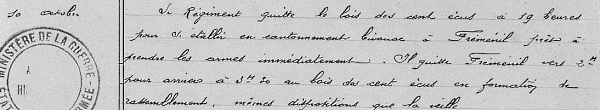 10 octobre
Le Régiment quitte le bois des cent écus à 19 heures
pour s'établir en cantonnement bivouac à Fréménil prêt à
prendre les armes immédiatement. Il quitte Fréménil vers 2h
pour arriver à 3h30 au bois des cent écus en formation de
rassemblement, mêmes dispositions que la veille
MINISTÈRE DE LA GUERRE